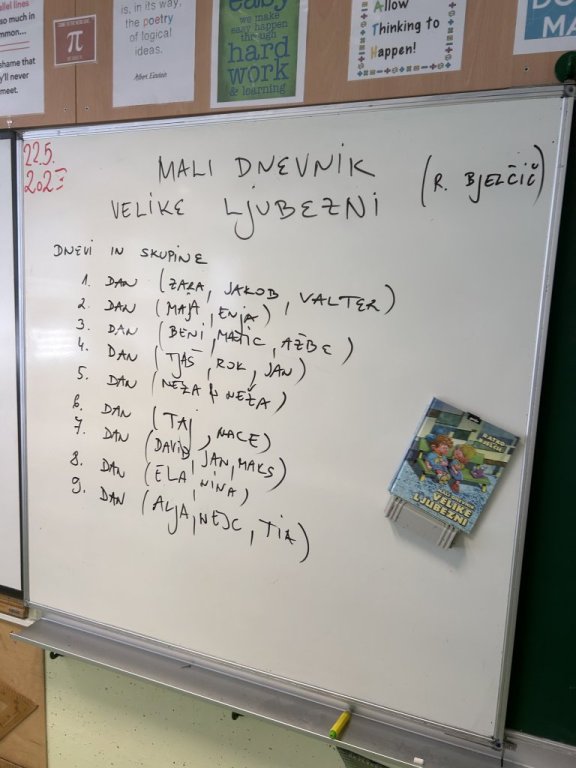 allel lines
so much in
mmon...
shame that
y'll never
meet.
π
is, in its way,
the poetry
of logical
ideas.
Albert Einstein
easy
we make
easy happen
through
hard
work
& learning
Allow
Thinking to
Happen!
MA
22.5.
2023
MALI DNEVNIK
VELIKE LJUBEZNI
(R. BJELČIČ)
DNEVI IN SKUPINE
1. DAN (ZARA, JAKOB, VALTER)
2. DAN (MAJA, ENJA)
3. DAN (BENI, MATIC, AŽBE)
4. DAN (TJAŠ, ROK, JAN)
5. DAN (NEŽA & NEŽA)
6. DAN (TAJ, NACE)
7. DAN (DAVID, JAN, MAKS)
8. DAN (ELA, NINA)
9. DAN (ALJA, NEJC, TIA)
VELIKE
LJUBEZNI